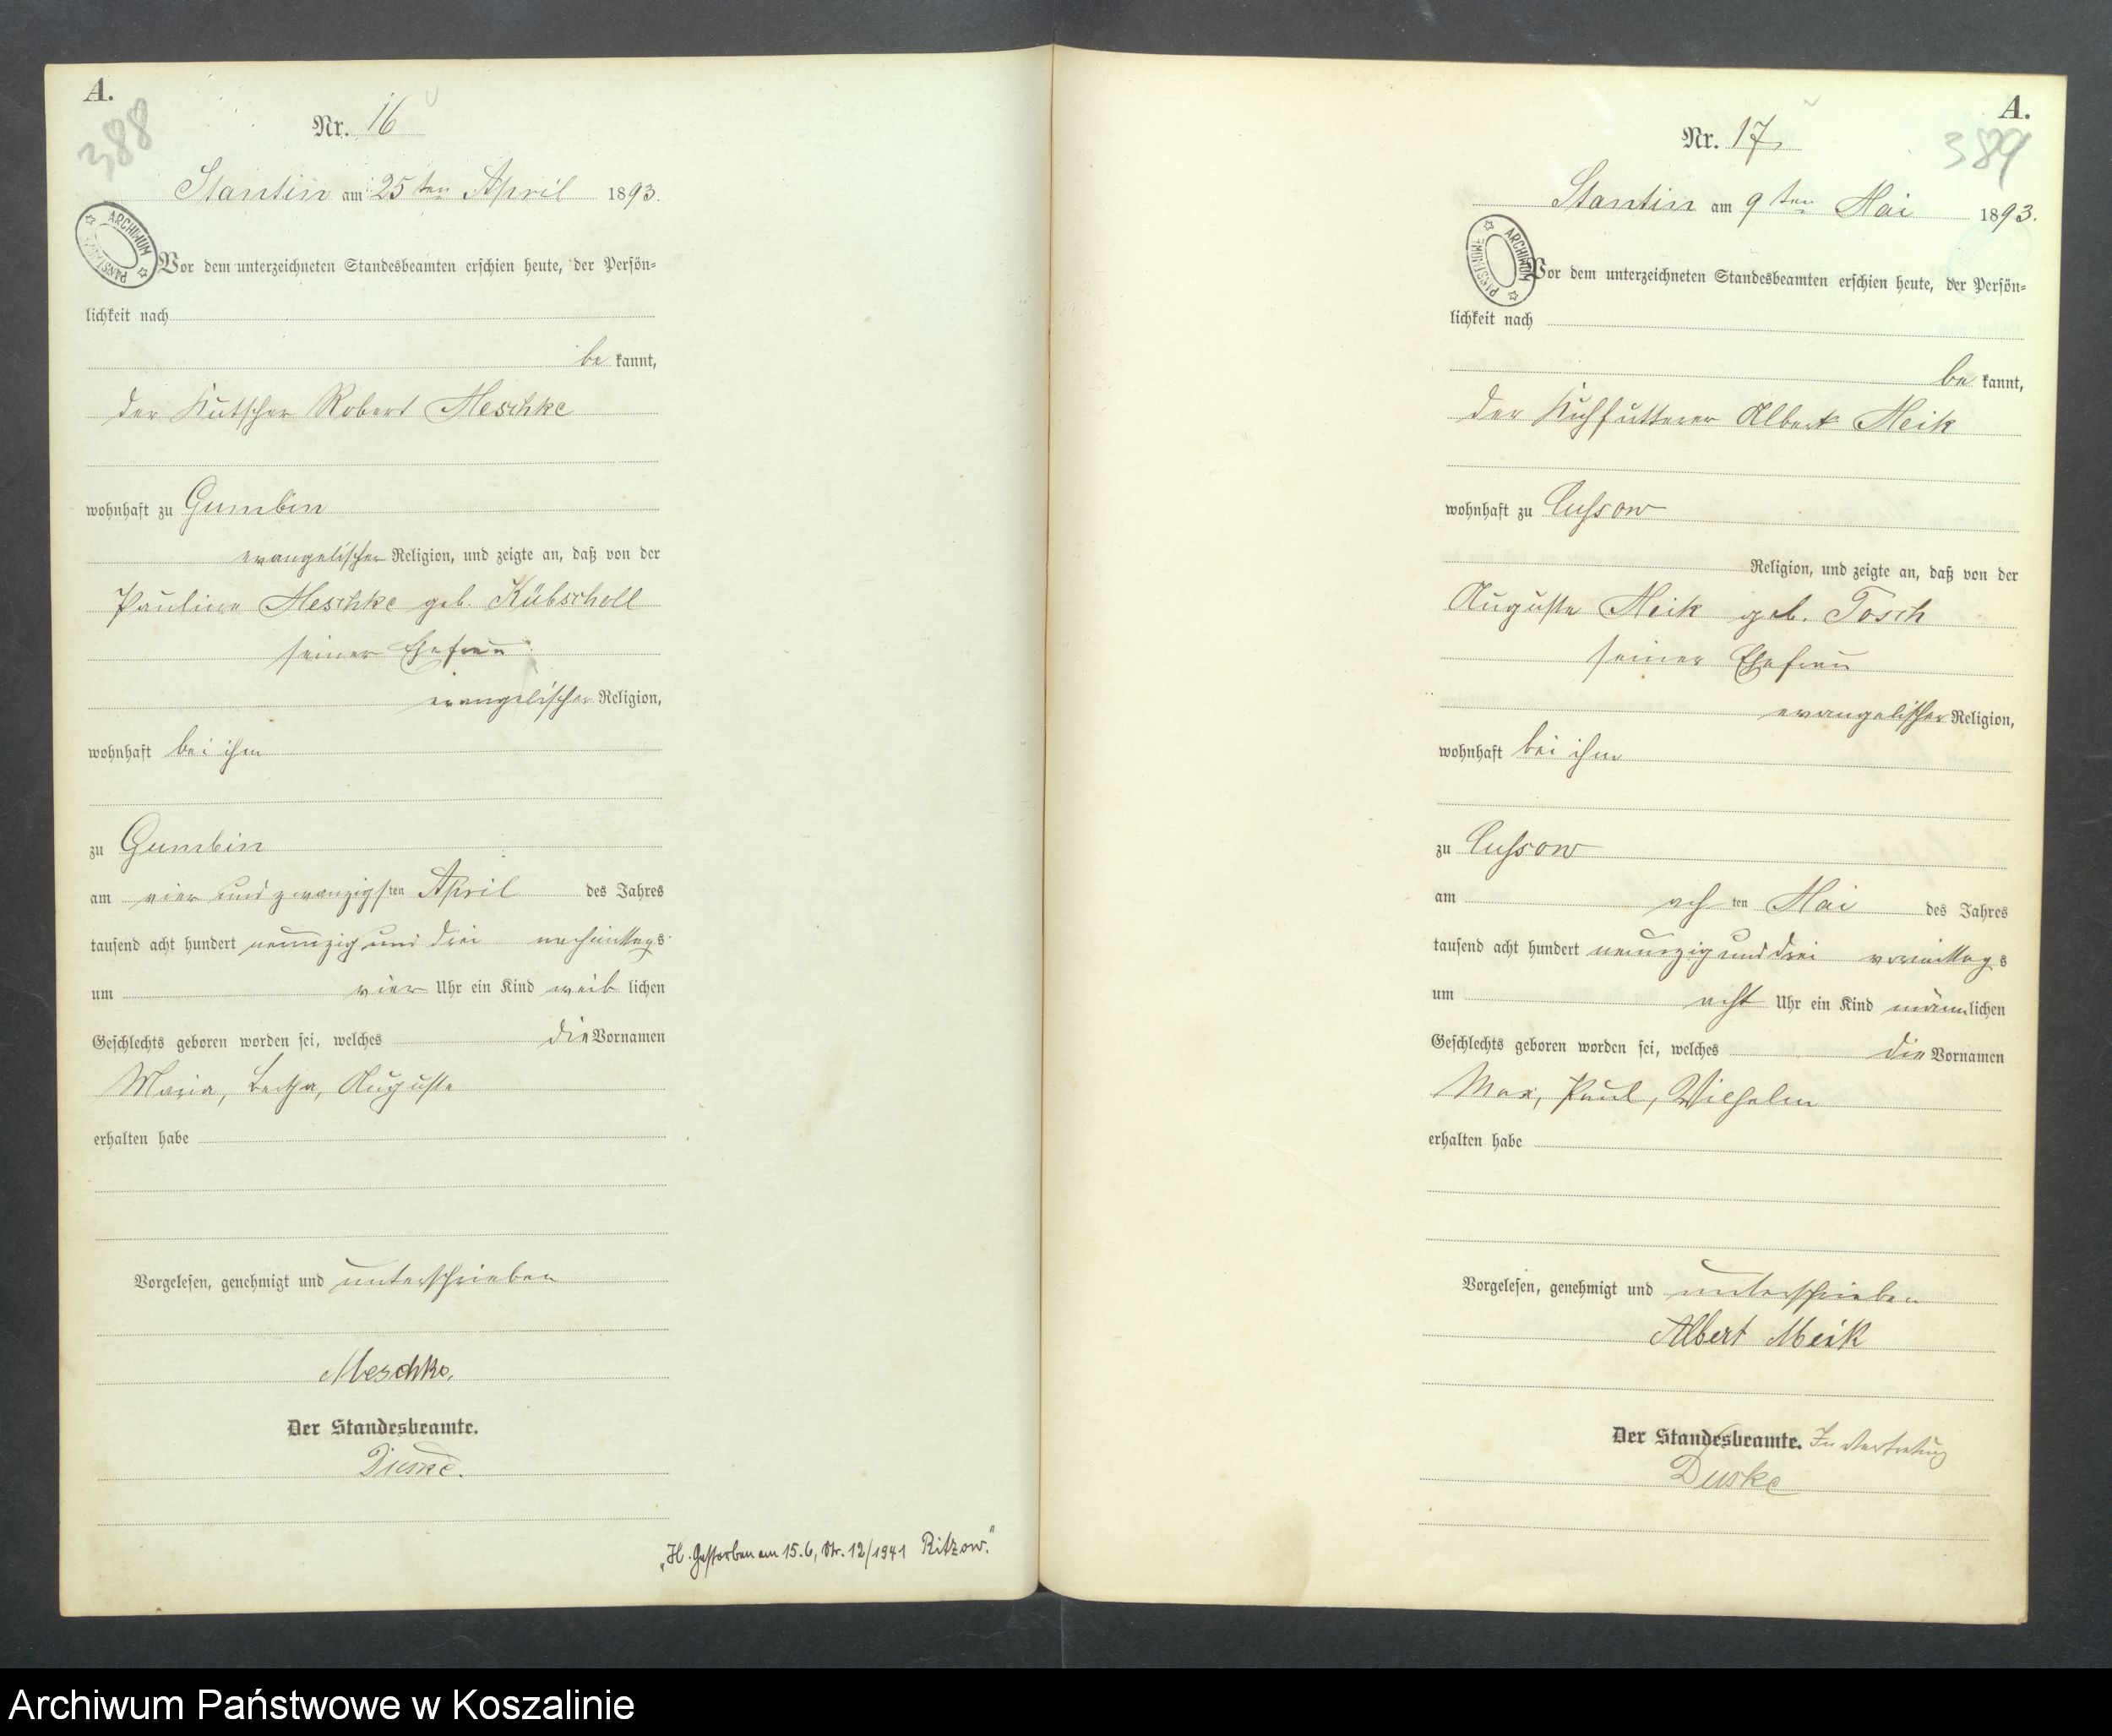 A.
388
Nr. 16
Stantin am 25ten April 1893.
ARCHIWUM PAŃSTWOWE
Vor dem unterzeichneten Standesbeamten erschien heute, der Persön=
lichkeit nach
be kannt,
der Kutscher Robert Meschke
wohnhaft zu Gumbin
evangelischer Religion, und zeigte an, daß von der
Pauline Meschke geb. Kübscholl
seiner Ehefrau
evangelischer Religion,
wohnhaft bei ihm
zu Gumbin
am vier und zwanzigsten April des Jahres
tausend acht hundert neunzig und drei nachmittags
um vier Uhr ein Kind weib lichen
Geschlechts geboren worden sei, welches die Vornamen
Maria, Bertha, Auguste
erhalten habe
Vorgelesen, genehmigt und unterschrieben
Meschke.
Der Standesbeamte.
„H. Gestorben am 15.6, Nr. 12/1941 Ritzow.“
A.
389
Nr. 17
Stantin am 9ten Mai 1893.
ARCHIWUM PAŃSTWOWE
Vor dem unterzeichneten Standesbeamten erschien heute, der Persön=
lichkeit nach
be kannt,
der Kuhfutterer Albert Meik
wohnhaft zu Lussow
Religion, und zeigte an, daß von der
Auguste Meik geb. Tosch
seiner Ehefrau
evangelischer Religion,
wohnhaft bei ihm
zu Lussow
am achten Mai des Jahres
tausend acht hundert neunzig und drei vormittags
um acht Uhr ein Kind männlichen
Geschlechts geboren worden sei, welches die Vornamen
Max, Paul, Wilhelm
erhalten habe
Vorgelesen, genehmigt und unterschrieben
Albert Meik
Der Standesbeamte. In Vertretung
Duske
Archiwum Państwowe w Koszalinie